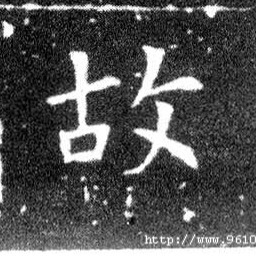 故
http://www.9610